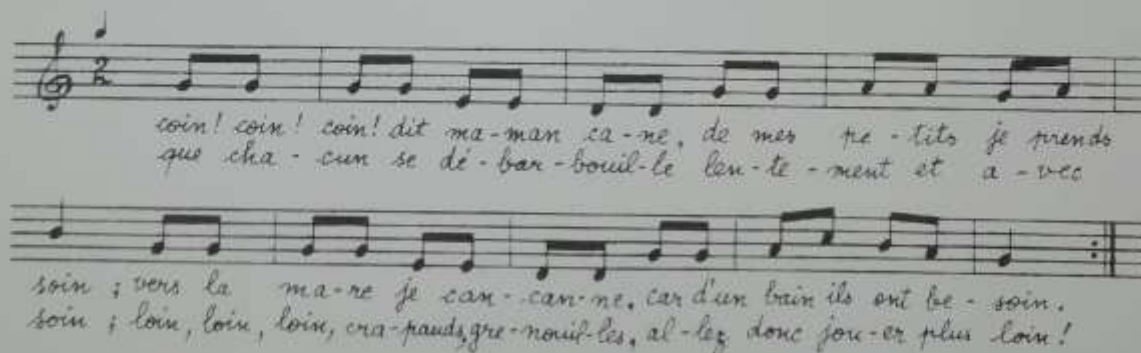 2
coin! coin! coin! dit ma-man ca-ne, de mes pe-tits je prends
que cha-cun se dé-bar-bouil-le len-te-ment et a-vec
soin ; vers la ma-re je can-can-ne, car d'un bain ils ont be-soin.
soin ; loin, loin, loin, cra-pauds, gre-nouil-les, al-lez donc jou-er plus loin!